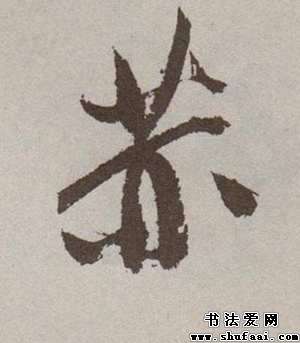 苏
书法爱网
www.shufaai.com